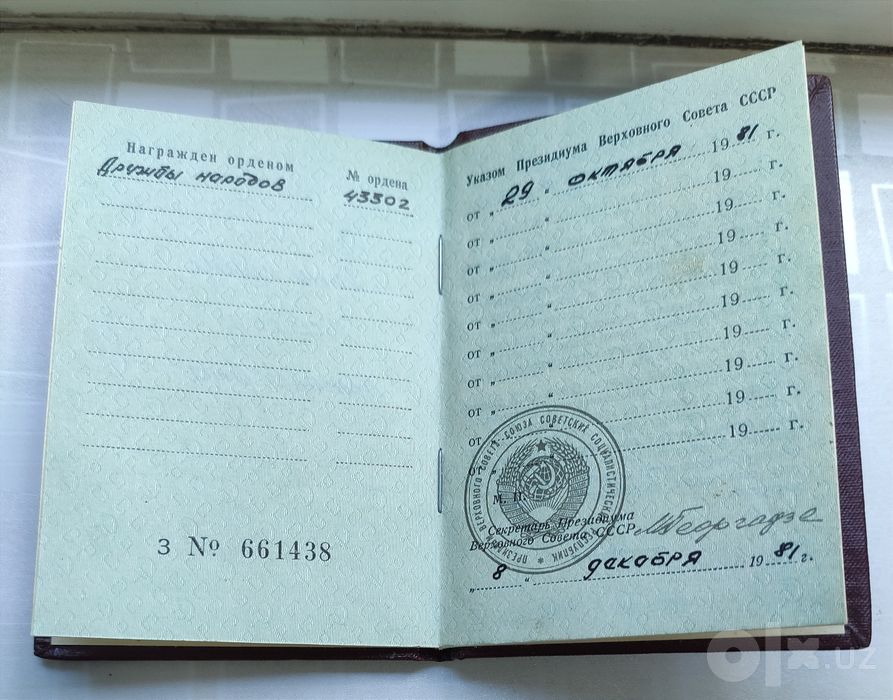 Награжден орденом
№ ордена
Дружбы народов
43302
З № 661438
Указом Президиума Верховного Совета СССР
от „ 29 “ октября 19 81 г.
от „ “ 19 г.
от „ “ 19 г.
от „ “ 19 г.
от „ “ 19 г.
от „ “ 19 г.
от „ “ 19 г.
от „ “ 19 г.
от „ “ 19 г.
от „ “ 19 г.
ПРЕЗИДИУМ ВЕРХОВНОГО СОВЕТА СОЮЗА СОВЕТСКИХ СОЦИАЛИСТИЧЕСКИХ РЕСПУБЛИК
М. П.
Секретарь Президиума
Верховного Совета СССР
МГеоргадзе
„ 8 “ декабря 19 81 г.
olx.uz